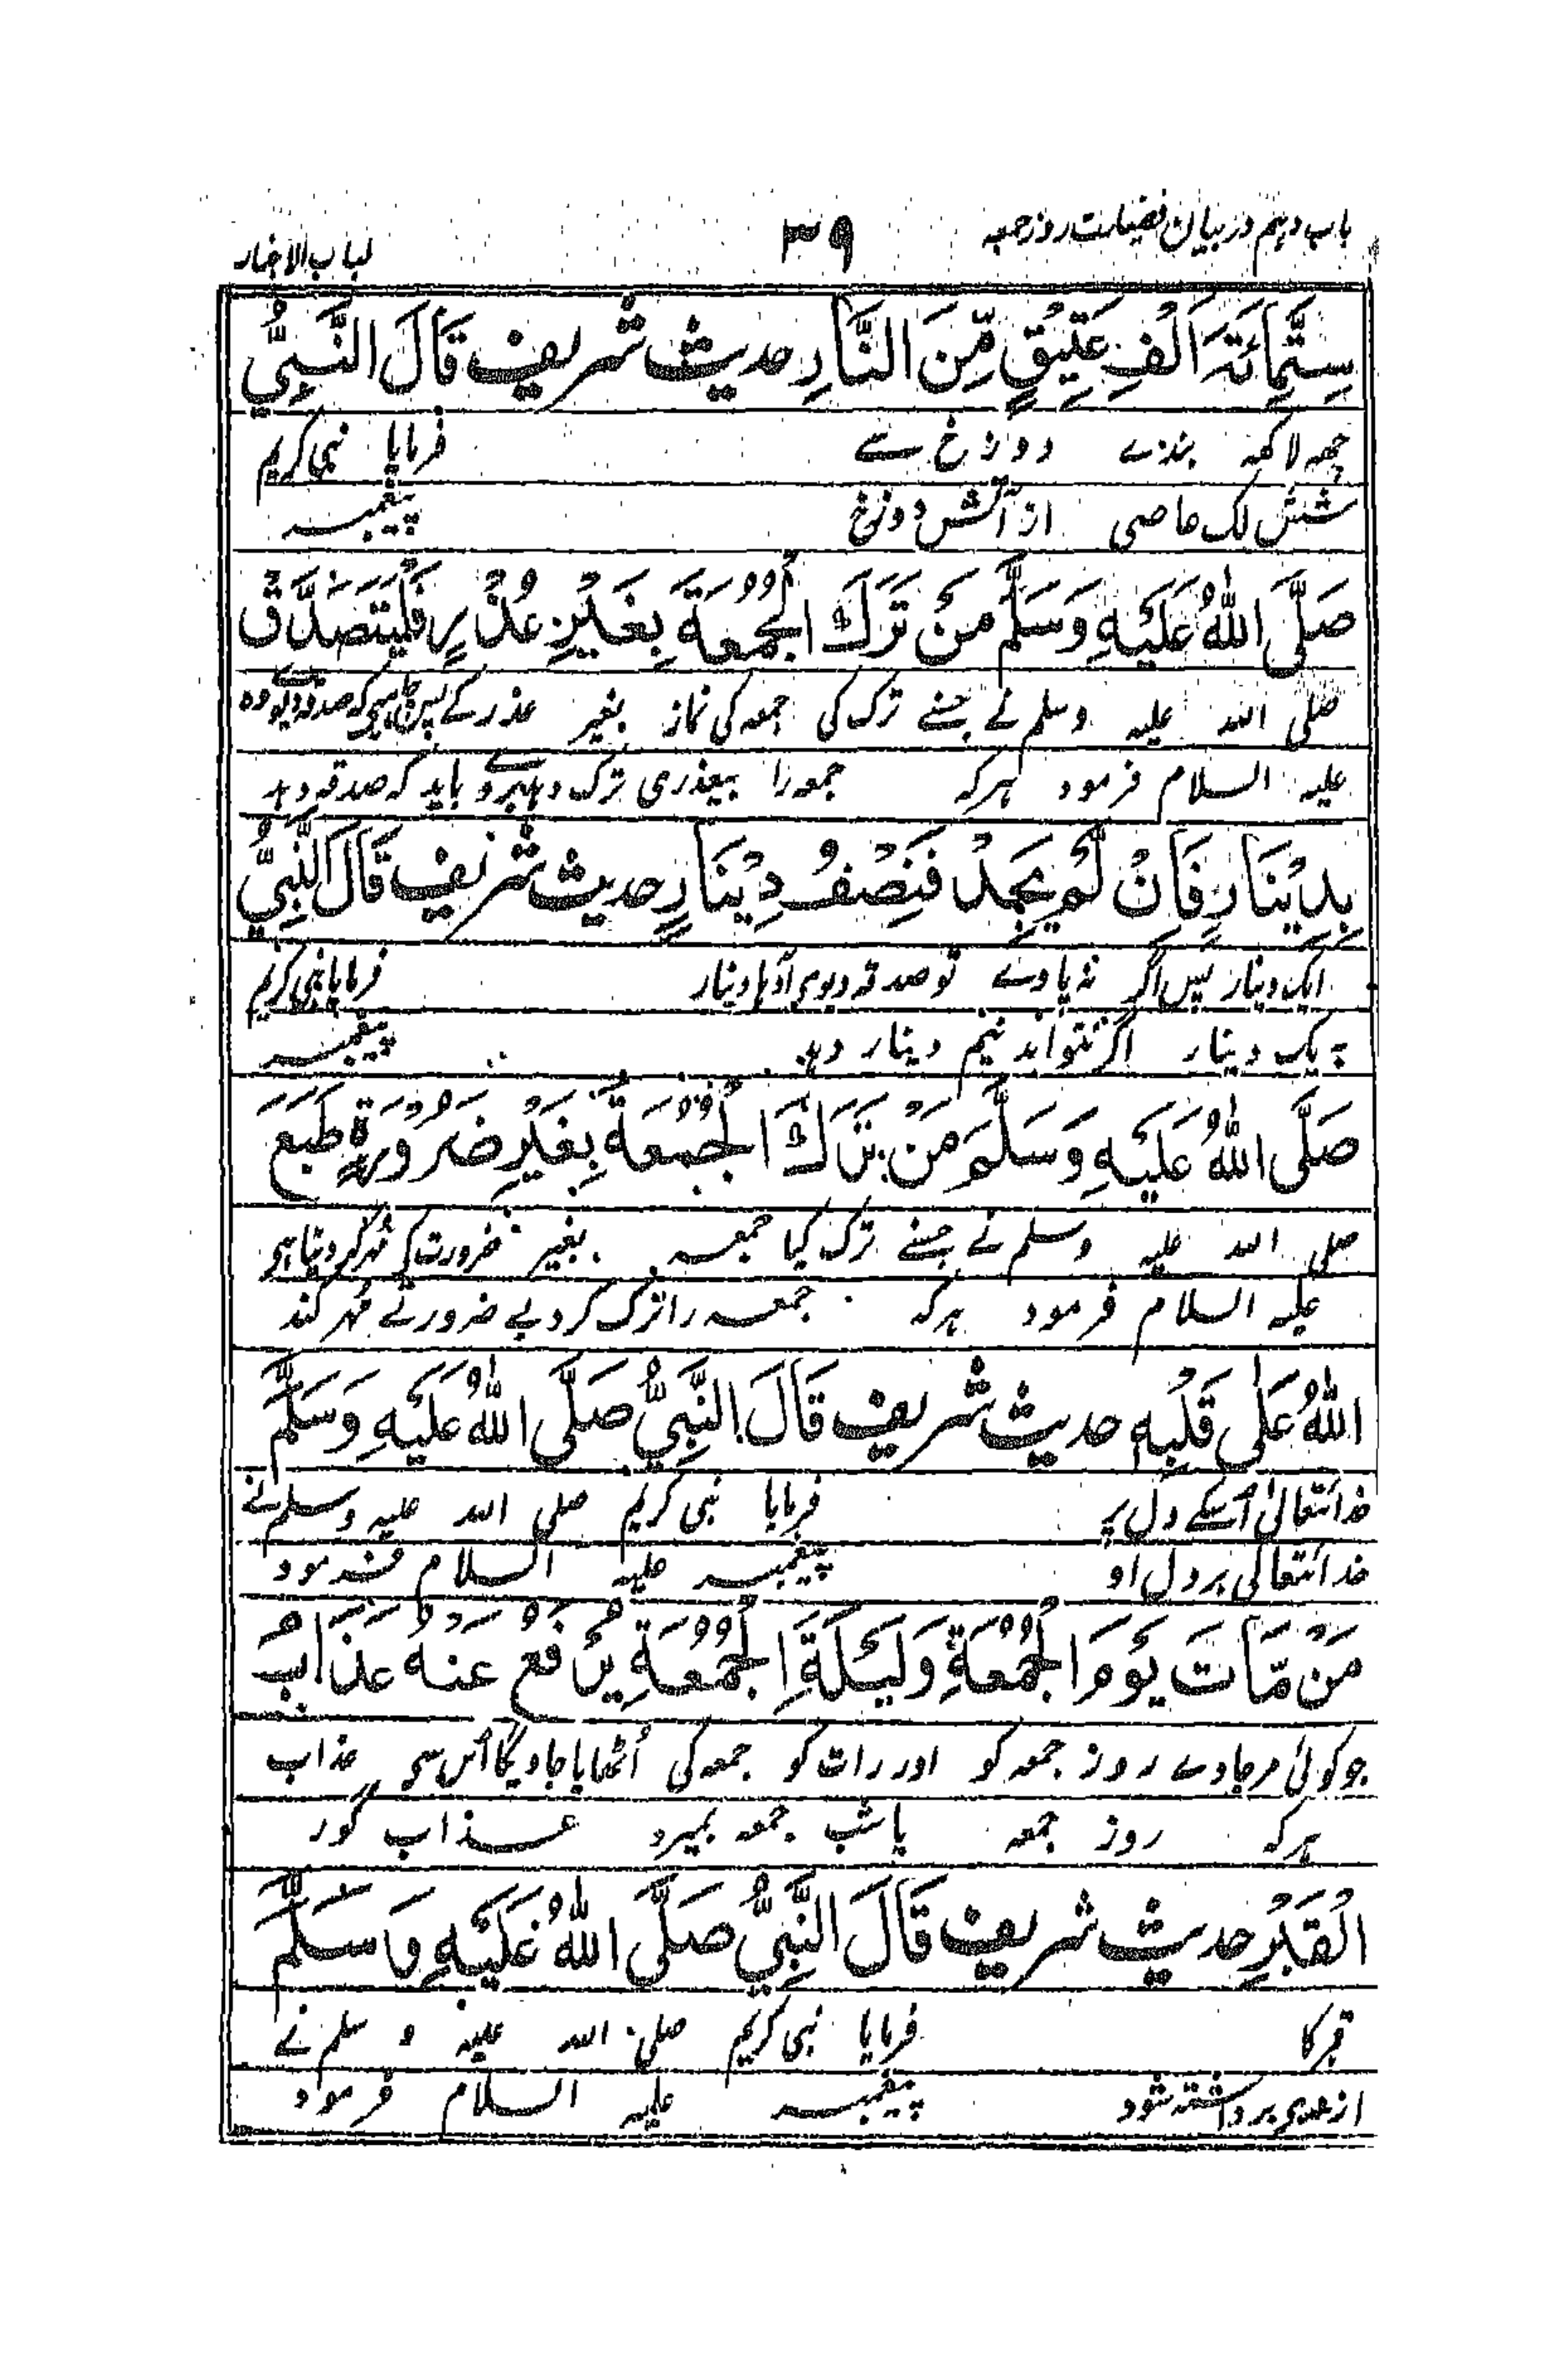 باب دہم در بیان فضیلت روز جمعہ ۳۹ لباب الاخبار
سِتَّمِائَةَ اَلْفِ عَتِيْقٍ مِّنَ النَّارِ حدیث شریف قَالَ النَّبِيُّ
چھہ لاکھہ بندے دوزخ سے فرمایا نبی کریم
شش لک عاصی از آتش دوزخ پیغمبر
صَلَّى اللّٰهُ عَلَيْهِ وَسَلَّمَ مَنْ تَرَكَ الْجُمُعَةَ بِغَيْرِ عُذْرٍ فَلْيَتَصَدَّقْ
صلی اللہ علیہ وسلم نے جسنے ترک کی جمعہ کی نماز بغیر عذر کے پس چاہیے کہ صدقہ دیوے وہ
علیہ السلام فرمود ہرکہ جمعہ را بیعذری ترک دہد برو باید کہ صدقہ دہد
بِدِيْنَارٍ فَاِنْ لَّمْ يَجِدْ فَنِصْفُ دِيْنَارٍ حدیث شریف قَالَ النَّبِيُّ
ایک دینار پس اگر نہ پاوے تو صدقہ دیوے آدہا دینار فرمایا نبی کریم
یہ یک دینار اگر نتواند نیم دینار دہد پیغمبر
صَلَّى اللّٰهُ عَلَيْهِ وَسَلَّمَ مَنْ تَرَكَ الْجُمُعَةَ بِغَيْرِ ضَرُوْرَةٍ طَبَعَ
صلی اللہ علیہ وسلم نے جسنے ترک کیا جمعہ بغیر ضرورت کے مُہر کر دیتا ہی
علیہ السلام فرمود ہرکہ جمعہ را ترک کرد بے ضرورتے مُہر کند
اللّٰهُ عَلٰى قَلْبِهٖ حدیث شریف قَالَ النَّبِيُّ صَلَّى اللّٰهُ عَلَيْهِ وَسَلَّمَ
خدائتعالیٰ اُسکے دل پر فرمایا نبی کریم صلی اللہ علیہ وسلم نے
خدائتعالی بر دل او پیغمبر علیہ السلام فرمود
مَنْ مَّاتَ يَوْمَ الْجُمُعَةِ وَلَيْلَةِ الْجُمُعَةِ يُرْفَعُ عَنْهُ عَذَابُ
جو کوئی مر جاوے روز جمعہ کو اور رات کو جمعہ کی اُٹھایا جاویگا اُس سی عذاب
ہرکہ روز جمعہ یا شب جمعہ بمیرد عذاب گور
الْقَبْرِ حدیث شریف قَالَ النَّبِيُّ صَلَّى اللّٰهُ عَلَيْهِ وَسَلَّمَ
قبر کا فرمایا نبی کریم صلی اللہ علیہ و سلم نے
از وے برداشتہ شود پیغمبر علیہ السلام فرمود